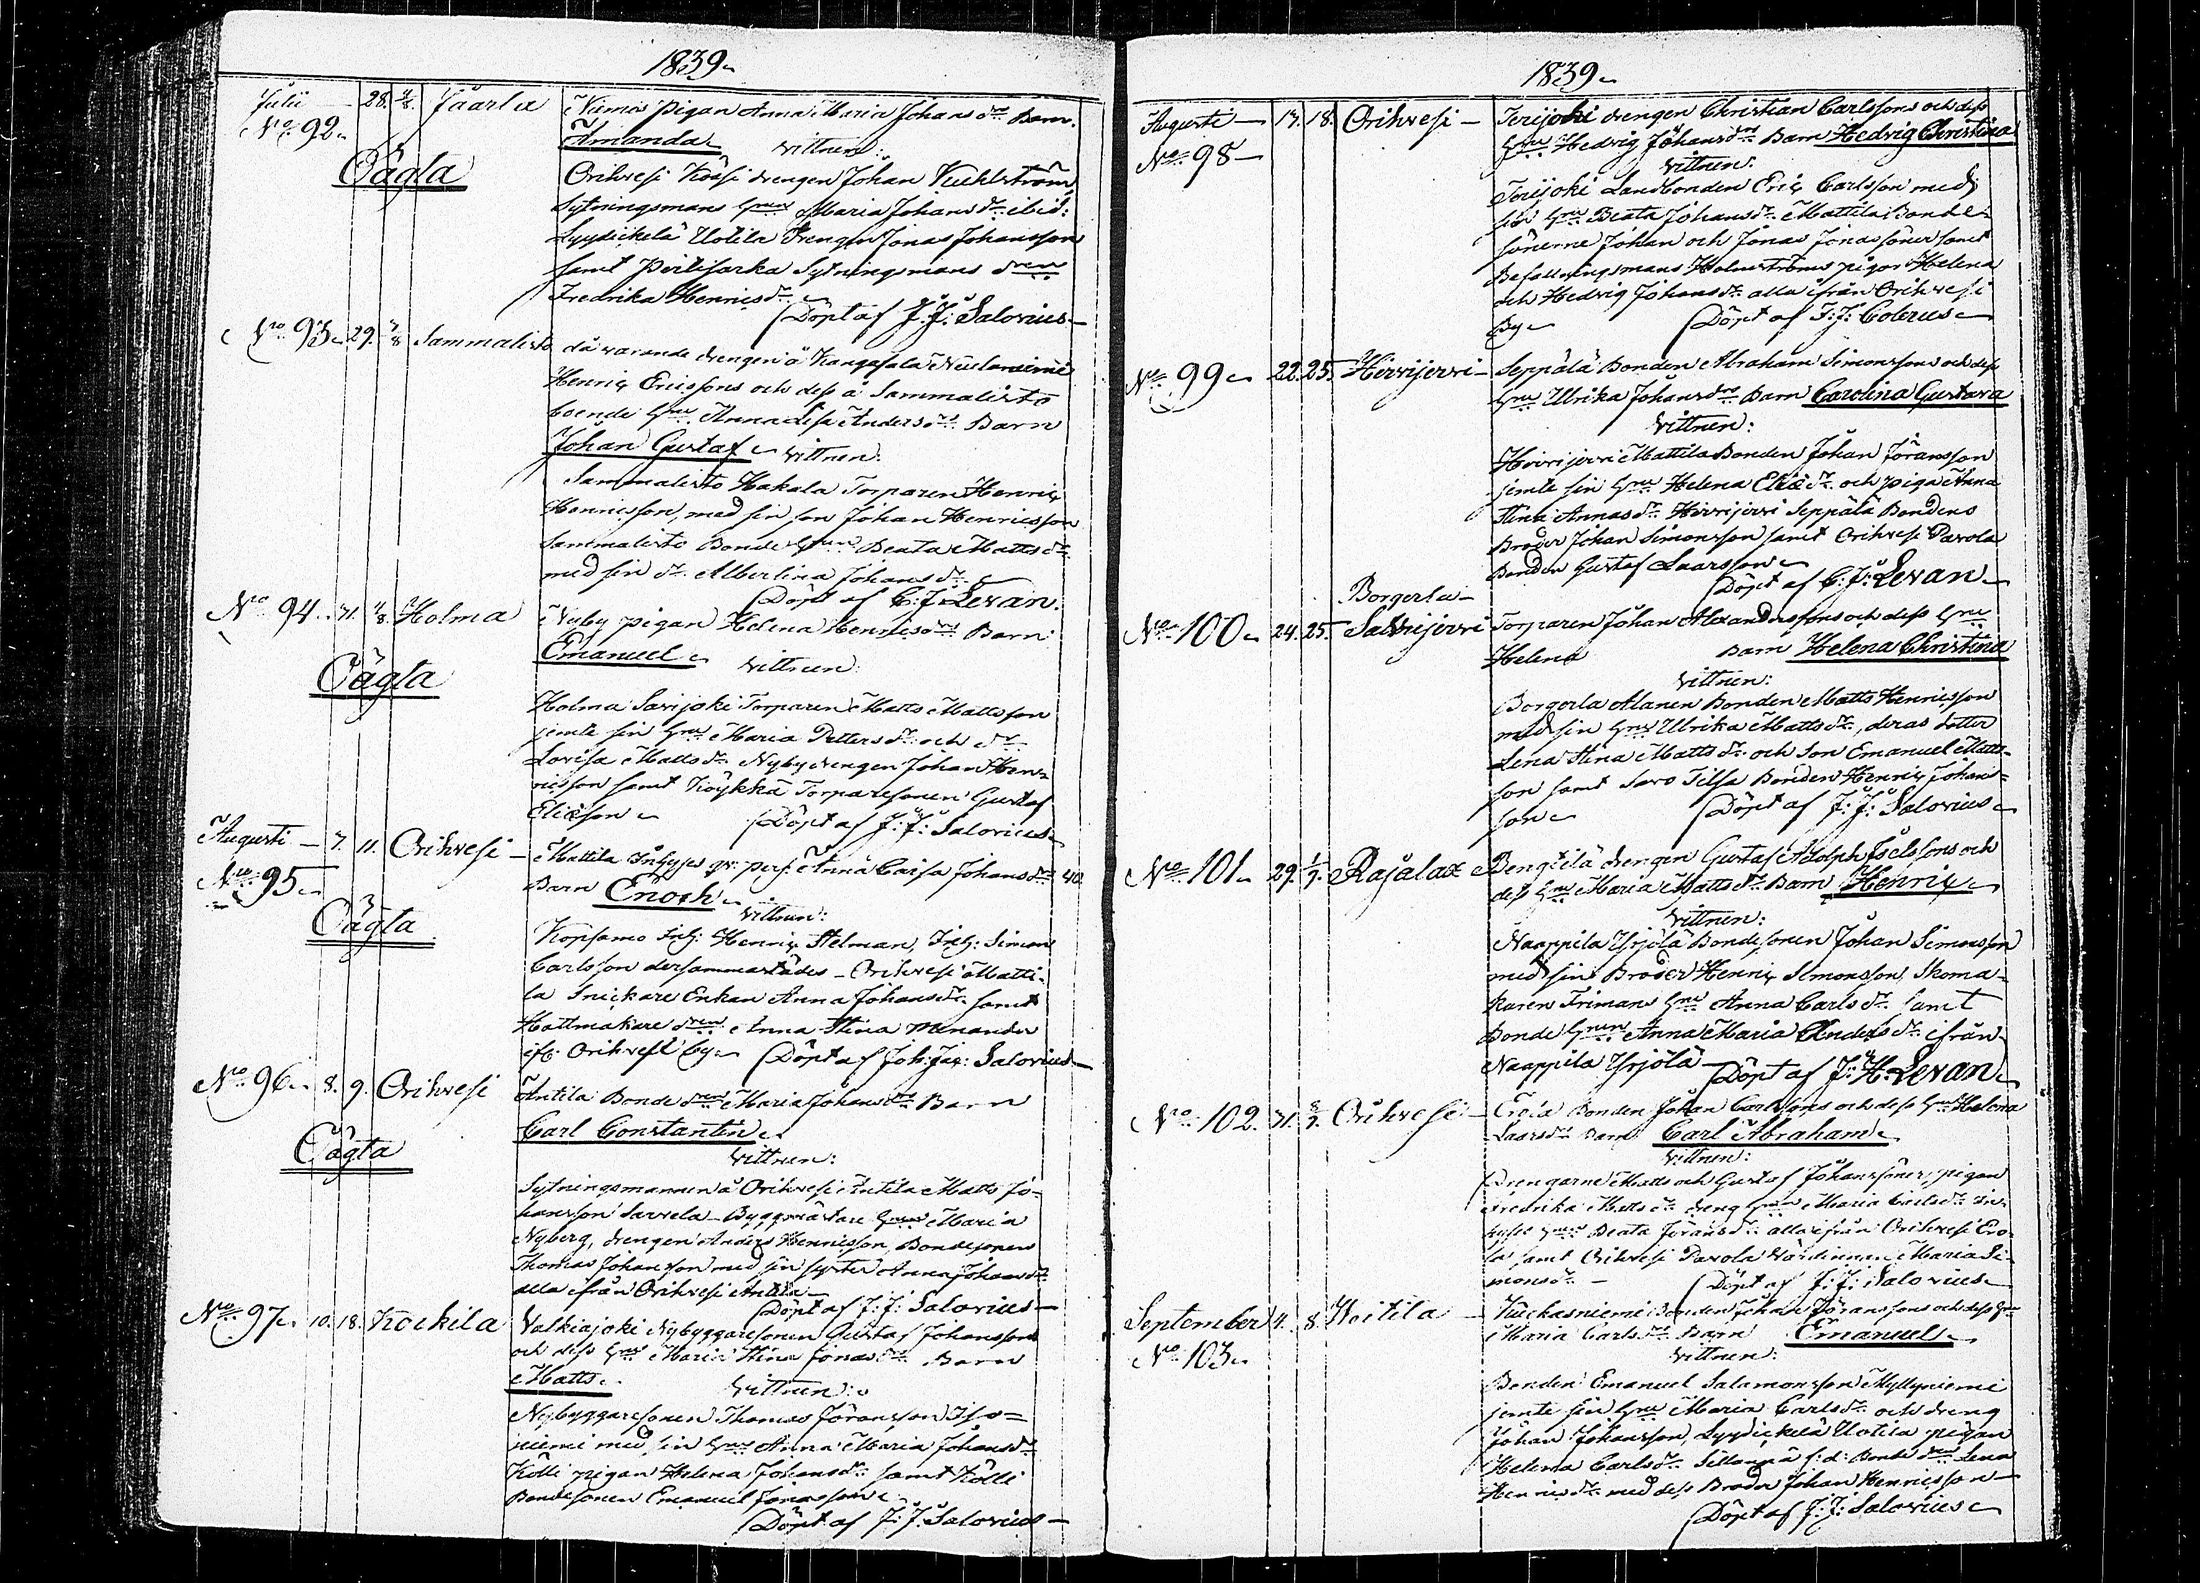 1839
Julii 28. 4/8. Jäärla Niemis Pigan Anna Maria Johans dr Barn
No 92. Amanda vittnen:
Oägta Orihvesi Kåisi drengen Johan Kuhlström
Sytningsmans hru Maria Johans dr ibid:
Lyydickelä Uotila drengen Jonas Johansson
samt Pertisarka Sytningsmans dren
Fredrika Henrics dr
Döpt af J:J: Salovius
No 93 29. 8 Sammalisto då varande drengen å Kangasala
Henric Ericssons och dess å Sammalisto
boende hru Anna Lisa Anders dr Barn
Johan Gustaf vittnen:
Sammalisto Hakala Torparen Henric
Henricsson, med sin son Johan Henricsson
Sammalisto Bonde hrun Beata Matts dr
med sin dr Albertina Johans dr
Döpt af C:J: Levan
No 94. 31. 4/8. Holma Nyby pigan Helena Henrics drs Barn
Emanuel vittnen:
Oägta
Holma Sarijoki Torparen Matts Mattsson
jemte sin hru Maria Petters dr och dr
Lovisa Matts dr Nyby drengen Johan Hen=
ricsson samt Köykkä Torparesonen Gustaf
Eliæson Döpt af J:J: Salovius
Augusti 7. 11. Orihvesi Mattila Inhyses qv: pers: Anna Caisa Johans dr 40
No 95 Barn Enoch
Oägta vittnen:
Kopsamo Inh: Henric Helman, Inh: Simon
Carlsson dersammastädes Orihvesi Matti=
la Snickare Enkan Anna Johans dr samt
Hattmakare dren Anna Stina Menander
ifr: Orihvesi by Döpt af Joh: Jac: Salovius
No 96 8. 9. Orihvesi Antila Bonde dren Maria Johans drs Barn
Carl Constantin
Oägta vittnen:
Sytningsmannen å Orihvesi Antila Matts Jo=
hansson Sarvela Byggmästare hrun Maria
Nyberg, drengen Anders Henricsson, Bondesonen
Thomas Johansson med sin syster Anna Johans dr
alla ifrån Orihvesi Antila
Döpt af J:J: Salovius
No 97 10. 18. Kockila Valkiajoki Nybyggaresonen Gustaf Johanssons
och dess hru Maria Stina Jonas drs Barn
Matts vittnen:
Nybyggaresonen Thomas Göransson Iso=
niemi med sin hru Anna Maria Johans dr
Kölli pigan Helena Johans dr samt Kölli
Bondesonen Emanuel Jonasson
Döpt af J:J: Salovius
1839
Augusti 17. 18. Orihvesi Terijoki drengen Christian Carlssons och dess
No 98 hru Hedvig Johans drs Barn Hedvig Christina
vittnen:
Terijoki Landbonden Eric Carlsson med
sin hru Beata Johans dr Mattila Bonde=
sönerne Johan och Jonas Jonassöner samt
Befallningsmans Holmströms pigor Helena
och Hedvig Johans dr alla ifrån Orihvesi
By Döpt af J:J: Colerus
No 99 22. 25. Hirvijervi Seppälä Bonden Abraham Simonssons och dess
hru Ulrika Johans drs Barn Carolina Gustava
vittnen:
Hirvijervi Mattila Bonden Johan Göransson
jemte sin hru Helena Eliæ dr och piga Anna
Stina Annas dr Hirvijervi Seppälä Bondens
Broder Johan Simonsson samt Orihvesi Pavola
Bonden Gustaf Laarsson
Döpt af C:J: Levan
Borgerla
No 100 24. 25. Salvijervi Torparen Johan Alexanderssons och dess hru
Helena Barn Helena Christina
vittnen:
Borgerla Alanen Bonden Matts Henricsson
med sin hru Ulrika Matts dr, deras dotter
Lena Stina Matts dr och Son Emanuel Matts=
son samt Savo Tilsa Bonden Henric Johans=
son Döpt af J:J: Salovius
No 101 29. 1/9. Rajalax Bengtilä drengen Gustaf Adolph Iselssons och
dess hru Maria Matts drs Barn Henric
vittnen:
Naappila Yrjölä Bondesonen Johan Simonsson
med sin Broder Henric Simonsson, Skoma=
karen Frimans hru Anna Carls dr samt
Bonde hrun Anna Maria Anders dr ifrån
Naappila Yrjölä Döpt af J:H: Levan
No 102. 31. 8/9. Orihvesi Erola Bonden Johan Carlssons och dess hru Helena
Laars drs Barn Carl Abraham
vittnen:
Drengarne Matts och Gustaf Johanssöner, pigan
Fredrika Matts dr dreng hrun Maria Carls dr In=
hyses hrun Beata Görans dr alla ifrån Orihvesi Ero=
la samt Orihvesi Pavola Värdinnan Maria Si=
mons dr
Döpt af J:J: Salovius
September 4. 8. Voitila Kuckasniemi Bonden Johan Göranssons och dess hru
No 103 Maria Carls drs Barn Emanuel
vittnen:
Bonden Emanuel Salamonsson Myllyniemi
jemte sin hru Maria Carls dr och dreng
Johan Johansson, Lyydickelä Uotila pigan
Helena Carls dr f: d: Bonde dren Lena
Henrics dr med dess Broder Johan Henricsson
Döpt af J:J: Salovius